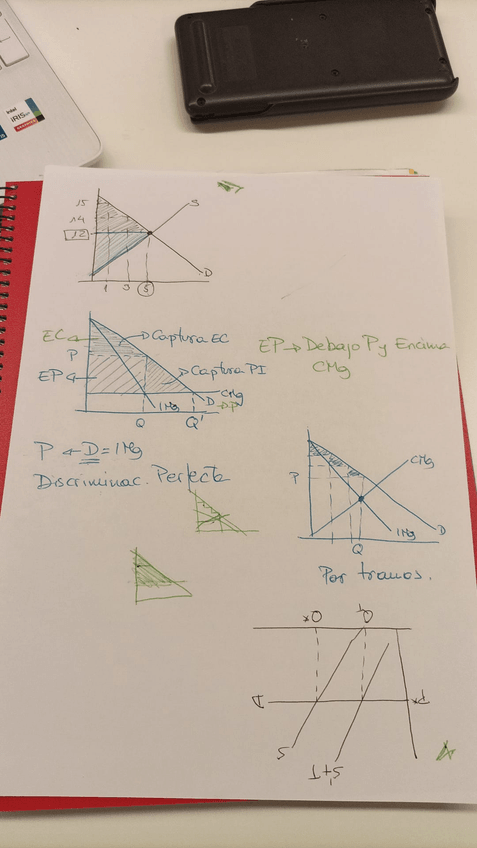 intel
iRIS xe
15
S
14
12
D
1
3
5
EC
Captura EC
P
EP
Captura PI
CMg
D
DP
IMg
Q
Q'
EP → Debajo P y Encima
CMg
P ← D = IMg
Discriminac. Perfecta
CMg
P
IMg
D
Q
Por tramos.
Q*
Q1
D
P*
S
S'+T